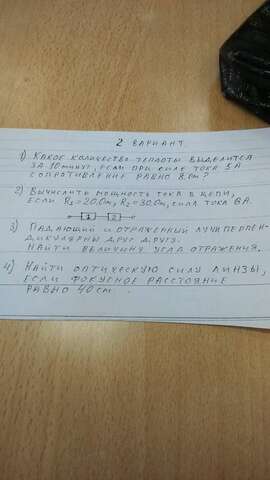 2 ВАРИАНТ.
1) КАКОЕ КОЛИЧЕСТВО ТЕПЛОТЫ ВЫДЕЛИТСЯ
ЗА 10 МИНУТ, ЕСЛИ ПРИ СИЛЕ ТОКА 5А
СОПРОТИВЛЕНИЕ РАВНО 8 Ом?
2) ВЫЧИСЛИТЬ МОЩНОСТЬ ТОКА В ЦЕПИ,
ЕСЛИ R₁=20 Ом, R₂=30 Ом, СИЛА ТОКА 6А.
1 2
3) ПАДАЮЩИЙ И ОТРАЖЕННЫЙ ЛУЧИ ПЕРПЕН-
ДИКУЛЯРНЫ ДРУГ ДРУГУ.
НАЙТИ ВЕЛИЧИНУ УГЛА ОТРАЖЕНИЯ.
4) НАЙТИ ОПТИЧЕСКУЮ СИЛУ ЛИНЗЫ,
ЕСЛИ ФОКУСНОЕ РАССТОЯНИЕ
РАВНО 40 см.